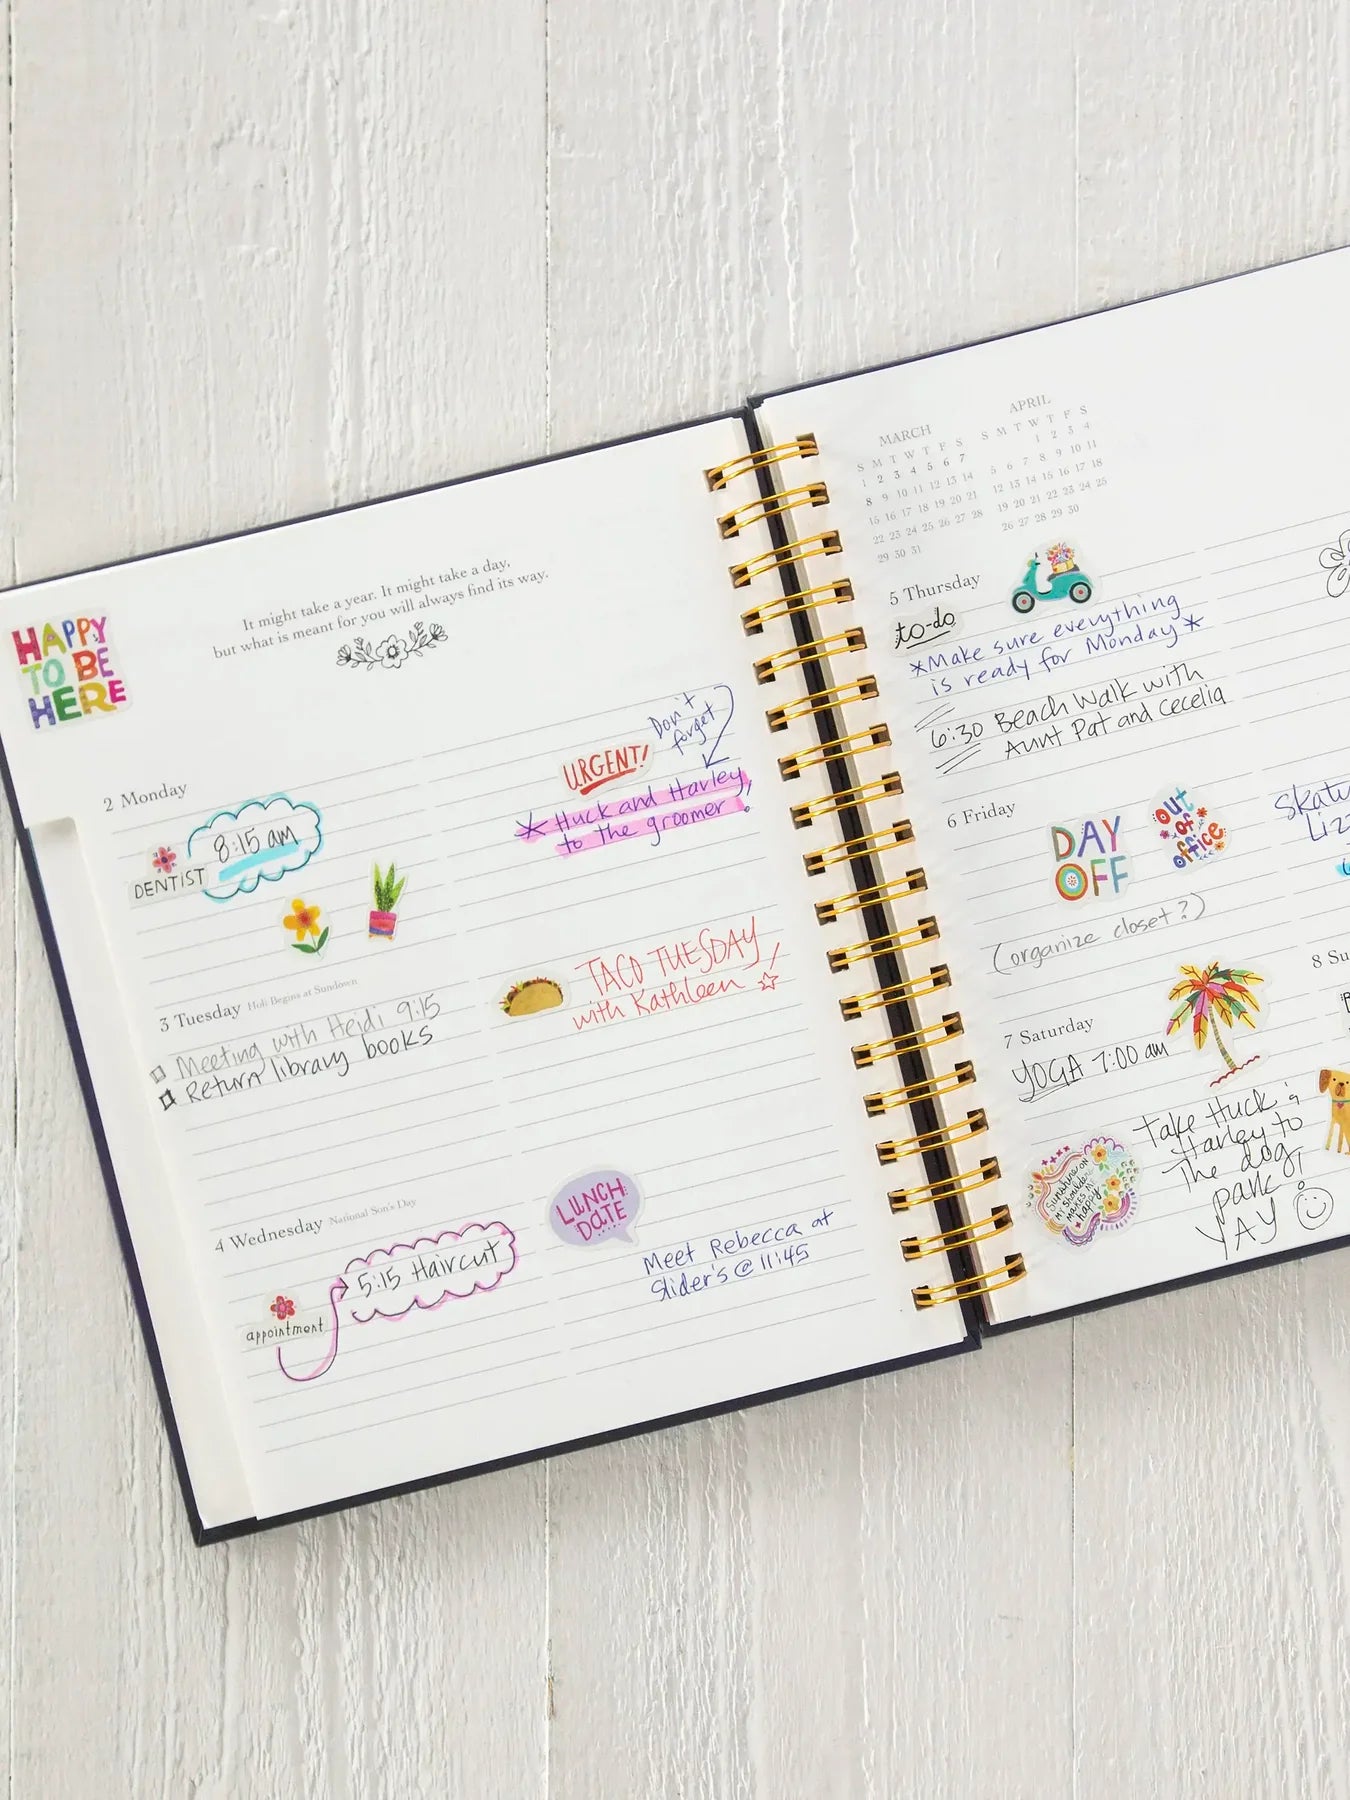 HAPPY
TO BE
HERE
It might take a year. It might take a day,
but what is meant for you will always find its way.
2 Monday
DENTIST
8:15 am
URGENT!
Don't
forget
* Huck and Harley,
to the groomer!
3 Tuesday Holi Begins at Sundown
Meeting with Heidi 9:15
Return library books
TACO TUESDAY
with Kathleen
4 Wednesday National Son's Day
appointment
5:15 Haircut
LUNCH
DATE
Meet Rebecca at
Slider's @ 11:45
MARCH
S M T W T F S
1 2 3 4 5 6 7
8 9 10 11 12 13 14
15 16 17 18 19 20 21
22 23 24 25 26 27 28
29 30 31
APRIL
S M T W T F S
1 2 3 4
5 6 7 8 9 10 11
12 13 14 15 16 17 18
19 20 21 22 23 24 25
26 27 28 29 30
5 Thursday
to-do
*Make sure everything
is ready for Monday*
6:30 Beach Walk with
Aunt Pat and Cecelia
6 Friday
DAY
OFF
out
of
office
(organize closet?)
7 Saturday
YOGA 7:00 am
Sunshine on
my shoulders
makes me
happy
Take Huck &
Harley to
the dog
park!
YAY
8 Su